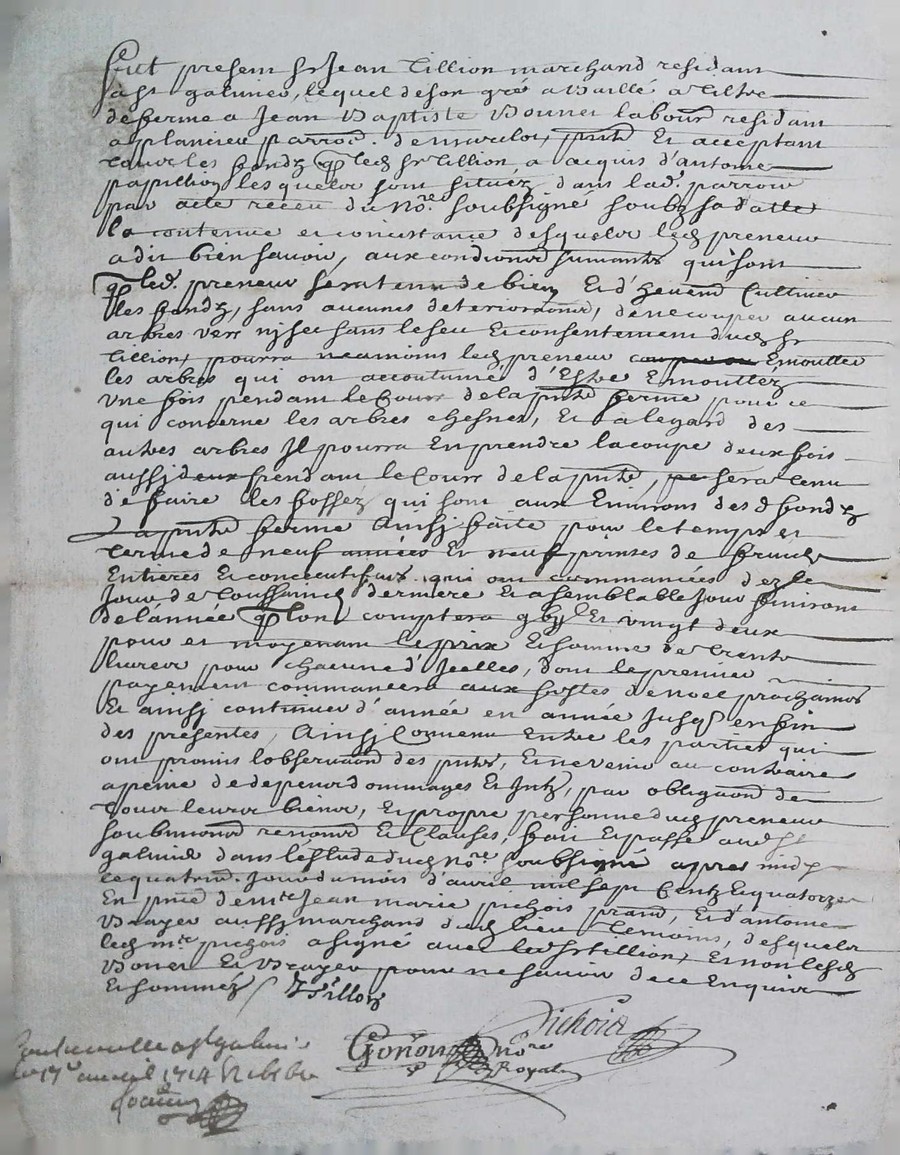 fut present Sr Jean Tillion marchand residant
a St galmier, lequel de son gré a baillé a tiltre
de ferme a Jean Baptiste Bonnet labour residant
a plancieu parroe. de marclop, pnte Et acceptant
tous les fondz q led Sr Tillion a acquis d'antoine
papillion lesquelz sont situéz dans lad. parroie
par acte receu du Nore soubsigné soubz sa datte
la contenue et concistance desquelz led preneur
a dit bien savoir, aux condions suivantes qui sont
q led. preneur sera tenu de bien Et d'heuemt Cultiver
les fondz, sans aucunes deteriorations, de ne couper aucun
arbres vers ny sec sans le sceu Et consentement dud Sr
Tillion, pourra neamoins led preneur Emoutter
les arbres qui ont accoutumé d'Estre Emouttez
une fois pendant le Cours de la pnte ferme pour ce
qui concerne les arbres chesnes, Et a legard des
autres arbres Il pourra En prendre la coupe deux fois
aussi pendant le Cours de la pnte, sera tenu
de faire les fossez qui sont aux Environs desd fondz
La pnte ferme Ainsi faite pour le temps et
terme de neuf années Et neuf prinses de fruicts
Entieres Et concecutifues qui ont commancées dez le
Jour de Toussaincts derniere Et a semblable Jour finiront
de l'année q lon comptera gbij Et vingt deux
pour et moyenant le prix Et somme de trente
livres pour chacune d'Icelles, dont le premier
payement commancera aux festes de noel prochaines
Et ainsi continuer d'année en année Jusq en fin
des presentes, Ainsi Convenu Entre les parties qui
ont promis lobservaon des pntes, Et ne venir au contraire
a peine de depens dommages Et Intz, par obligaon de
tous leurs biens, Et propre personne dud preneur
soubmions renons Et Clauses, fait Et passé aud St
galmier dans lestude dud Nore soubsigné apres midy
le quatrie. Jour du mois d'avril mil sept Centz Et quatorze
En pnce de Mre Jean marie pichois prand, Et d'antoine
Brayer aussy marchand dud lieu temoins, desquelz
led Mre pichois a signé avec led Sr tillion, Et non lesd
Bonnet Et Brayer pour ne savoir de ce Enquis
Et sommez / J Tillon
Pichois
Gonon nore
Royal
Controolle a St Galmier
le 17e avril 1714